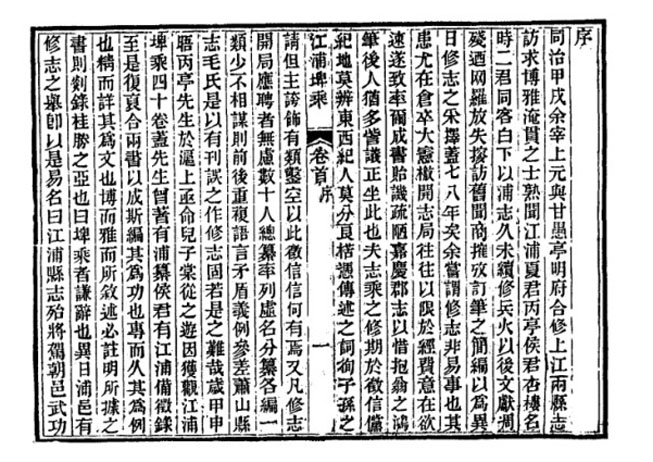 序
同治甲戌余宰上元與甘愚亭明府合修上江兩縣志
訪求博雅淹貫之士熟聞江浦夏君丙亭侯君杏樓名
時二君同客白下以浦志久未續修兵火以後文獻凋
殘迺網羅放失搜訪舊聞商搉攷訂筆之簡編以爲異
日修志之采擇蓋七八年矣余嘗謂修志非易事也其
患尤在倉卒大憲檄開志局往往以限於經費意在欲
速遂致率爾成書貽譏疏陋嘉慶郡志以惜抱翁之鴻
筆後人猶多訾議正坐此也夫志乘之修期於徵信儻
紀地莫辨東西紀人莫分良楛憑傳述之詞徇子孫之
江浦埤乘 卷首 序 一
請但主誇飾有類鑿空以此徵信信何有焉又凡修志
開局應聘者無慮數十人總纂率列虛名分纂各編一
類少不相謀則前後重複語言矛盾義例參差蕭山縣
志毛氏是以有刊誤之作修志固若是之難哉歲甲申
晤丙亭先生於滬上亟命兒子棠從之遊因獲觀江浦
埤乘四十卷蓋先生曾著有浦纂侯君有江浦備徵錄
至是復夏合兩書以成斯編其爲功也專而久其爲例
也精而詳其爲文也博而雅而所敘述必註明所據之
書則剡錄桂勝之亞也曰埤乘者謙辭也異日浦邑有
修志之舉卽以是易名曰江浦縣志殆將駕朝邑武功